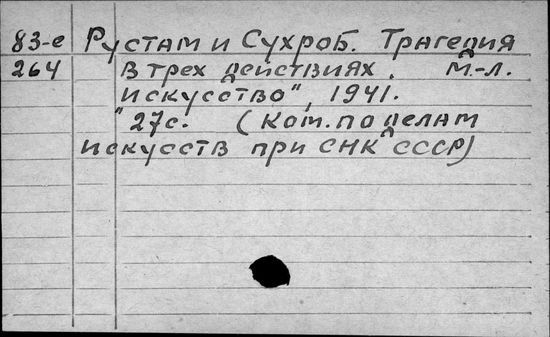 83-е Рустам и Сухроб. Трагедия
264 в трех действиях. М.-л.
искусство", 1941.
"27с. (Ком. по делам
искусств при СНК СССР)